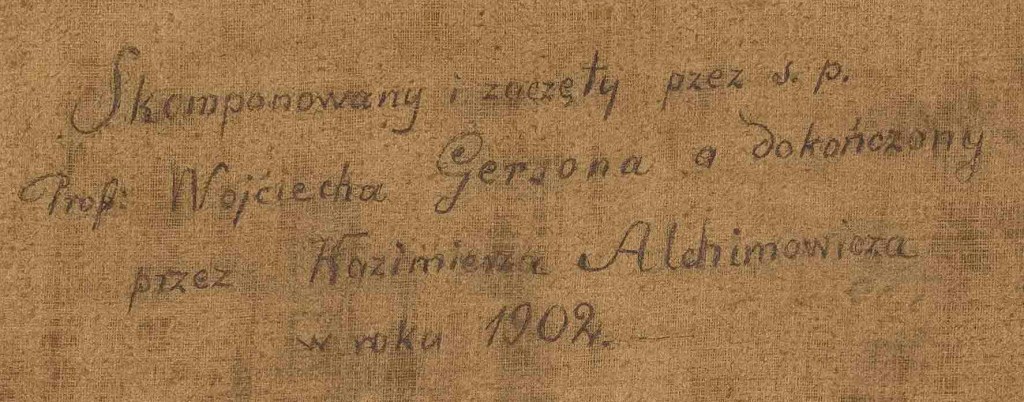 Skomponowany i zaczęty pzez ś. p.
Prof: Wojciecha Gersona a dokończony
przez Kazimierza Alchimowicza
w roku 1902r.